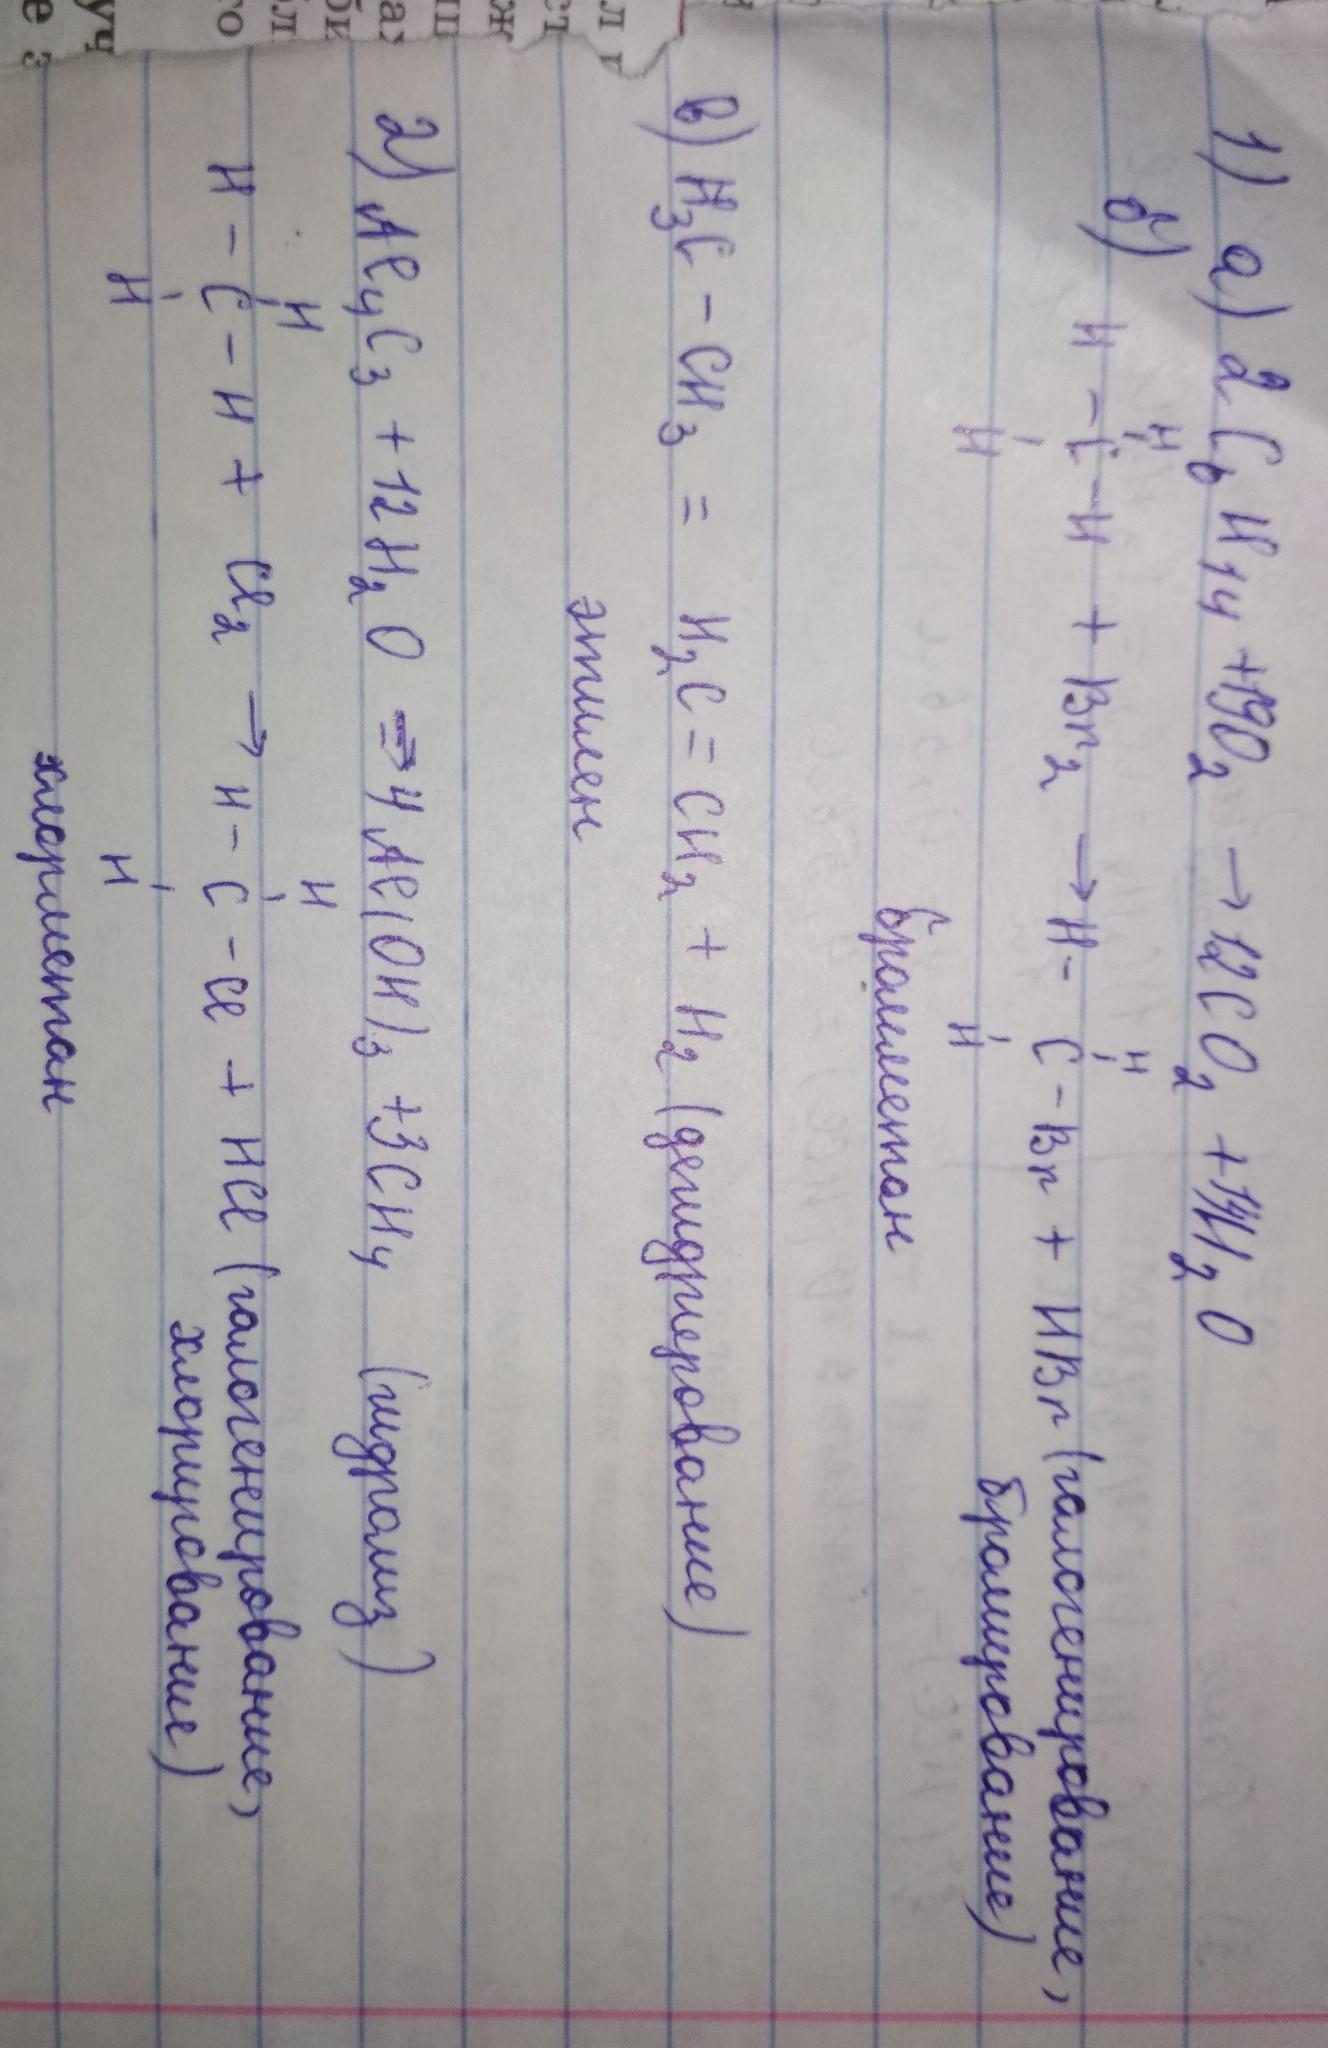 1) а) 2C₆H₁₄ + 19O₂ → 12CO₂ + 14H₂O
H H
б) H – C – H + Br₂ → H – C – Br + HBr (галогенирование,
H H бромирование)
бромметан
в) H₃C – CH₃ = H₂C = CH₂ + H₂ (дегидрирование)
этилен
2) Al₄C₃ + 12H₂O → 4Al(OH)₃ + 3CH₄ (гидролиз)
H H
H – C – H + Cl₂ → H – C – Cl + HCl (галогенирование,
H H хлорирование)
хлорметан